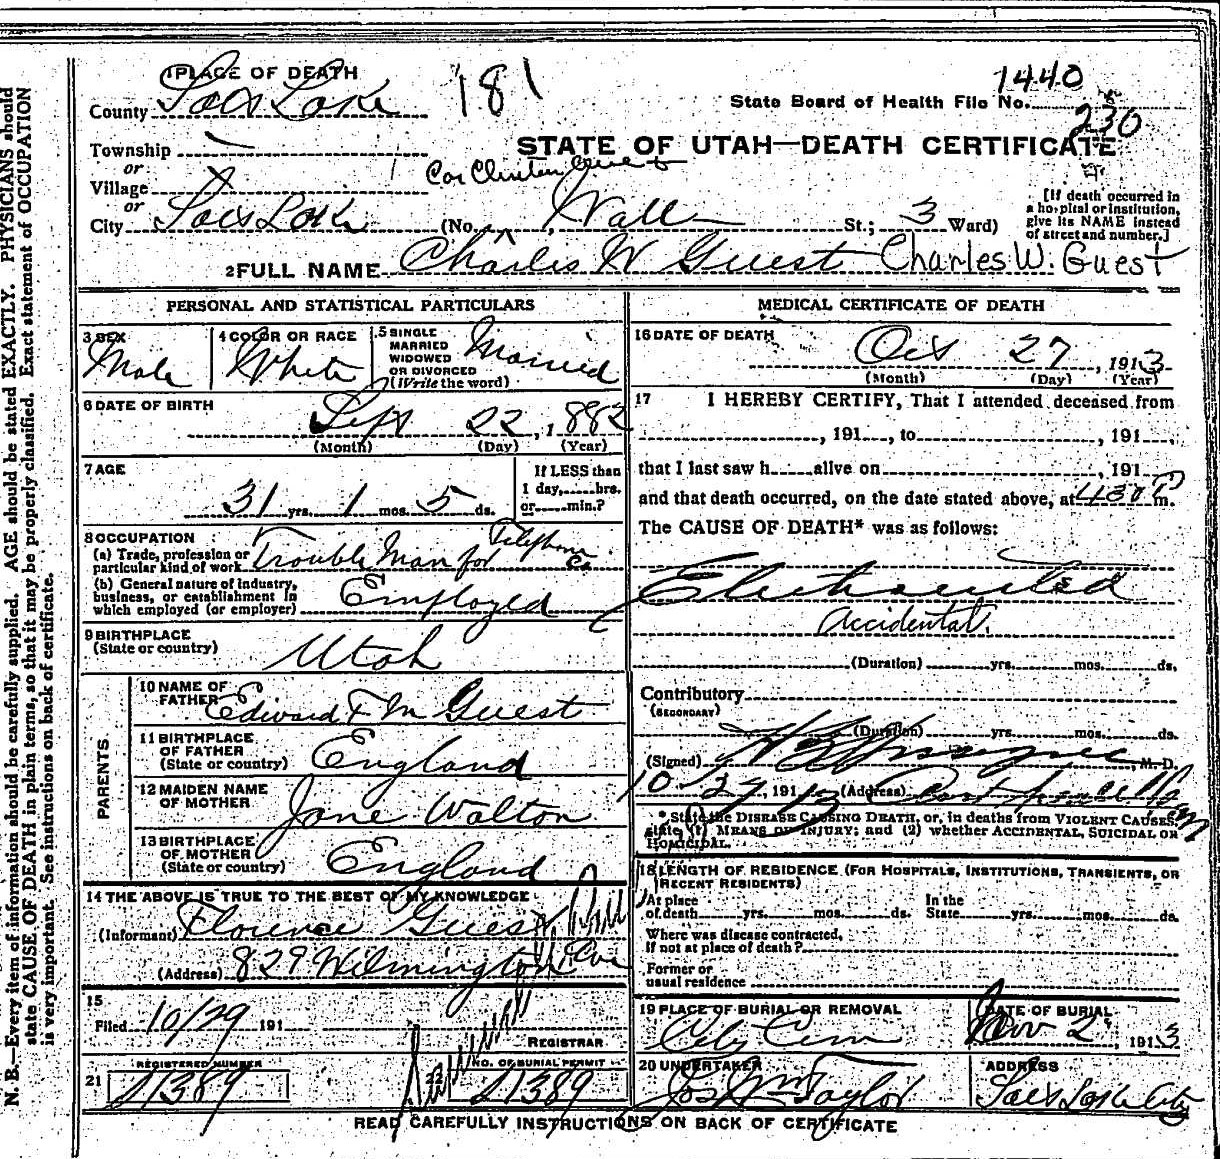 1 PLACE OF DEATH
181
1440
County Salt Lake
State Board of Health File No.
230
Township
STATE OF UTAH—DEATH CERTIFICATE
or
Village
Cor Clinton Ave &
or
City Salt Lake (No. , Wall St.; 3 Ward)
[If death occurred in
a hospital or institution,
give its NAME instead
of street and number.]
2 FULL NAME Charles W Guest Charles W. Guest
PERSONAL AND STATISTICAL PARTICULARS
3 SEX
Male
4 COLOR OR RACE
White
5 SINGLE
MARRIED
WIDOWED
OR DIVORCED
(Write the word)
Married
6 DATE OF BIRTH
Sept 22, 1882
(Month) (Day) (Year)
7 AGE
31 yrs. 1 mos. 5 ds.
If LESS than
1 day, hrs.
or min.?
8 OCCUPATION
(a) Trade, profession or
particular kind of work Trouble Man for Telephone Co.
(b) General nature of industry,
business, or establishment in
which employed (or employer) Employed
9 BIRTHPLACE
(State or country)
Utah
PARENTS
10 NAME OF
FATHER
Edward F M Guest
11 BIRTHPLACE
OF FATHER
(State or country)
England
12 MAIDEN NAME
OF MOTHER
Jane Walton
13 BIRTHPLACE
OF MOTHER
(State or country)
England
14 THE ABOVE IS TRUE TO THE BEST OF MY KNOWLEDGE
(Informant) Florence Guest
(Address) 829 Wilmington Ave
15
Filed 10/29 191
REGISTRAR
REGISTERED NUMBER
21
NO. OF BURIAL PERMIT
22
MEDICAL CERTIFICATE OF DEATH
16 DATE OF DEATH
Oct 27, 1913
(Month) (Day) (Year)
17 I HEREBY CERTIFY, That I attended deceased from
, 191 , to , 191
that I last saw h alive on , 191
and that death occurred, on the date stated above, at 430 P m.
The CAUSE OF DEATH* was as follows:
Electrocuted
Accidental.
(Duration) yrs. mos. ds.
Contributory
(SECONDARY)
(Duration) yrs. mos. ds.
(Signed) M. D.
10-27, 1913 (Address)
* State the DISEASE CAUSING DEATH, or, in deaths from VIOLENT CAUSES,
state (1) MEANS OF INJURY; and (2) whether ACCIDENTAL, SUICIDAL OR
HOMICIDAL.
18 LENGTH OF RESIDENCE (FOR HOSPITALS, INSTITUTIONS, TRANSIENTS, OR
RECENT RESIDENTS)
At place
of death yrs. mos. ds.
In the
State yrs. mos. ds.
Where was disease contracted,
if not at place of death?
Former or
usual residence
19 PLACE OF BURIAL OR REMOVAL
City Cem
DATE OF BURIAL
Nov 2, 1913
20 UNDERTAKER
Jos Wm Taylor
ADDRESS
Salt Lake City
READ CAREFULLY INSTRUCTIONS ON BACK OF CERTIFICATE
N. B.—Every item of information should be carefully supplied. AGE should be stated EXACTLY. PHYSICIANS should
state CAUSE OF DEATH in plain terms, so that it may be properly classified. Exact statement of OCCUPATION
is very important. See instructions on back of certificate.